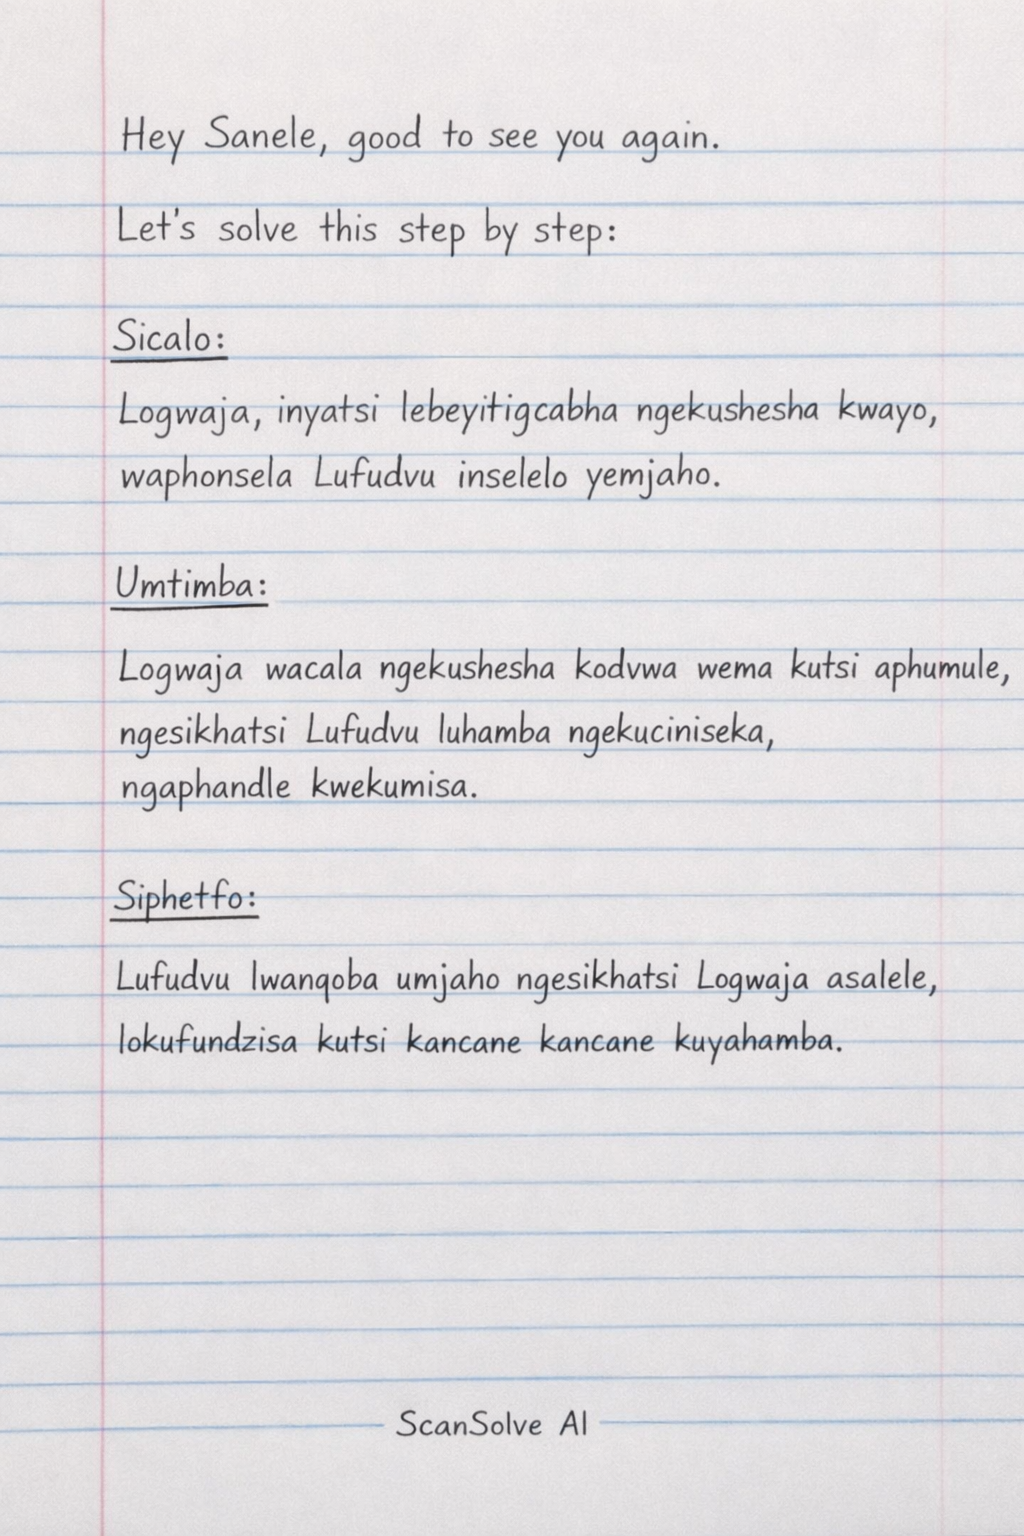 Hey Sanele, good to see you again.
Let's solve this step by step:
Sicalo:
Logwaja, inyatsi lebeyitigcabha ngekushesha kwayo,
waphonsela Lufudvu inselelo yemjaho.
Umtimba:
Logwaja wacala ngekushesha kodvwa wema kutsi aphumule,
ngesikhatsi Lufudvu luhamba ngekuciniseka,
ngaphandle kwekumisa.
Siphetfo:
Lufudvu lwanqoba umjaho ngesikhatsi Logwaja asalele,
lokufundzisa kutsi kancane kancane kuyahamba.
ScanSolve AI